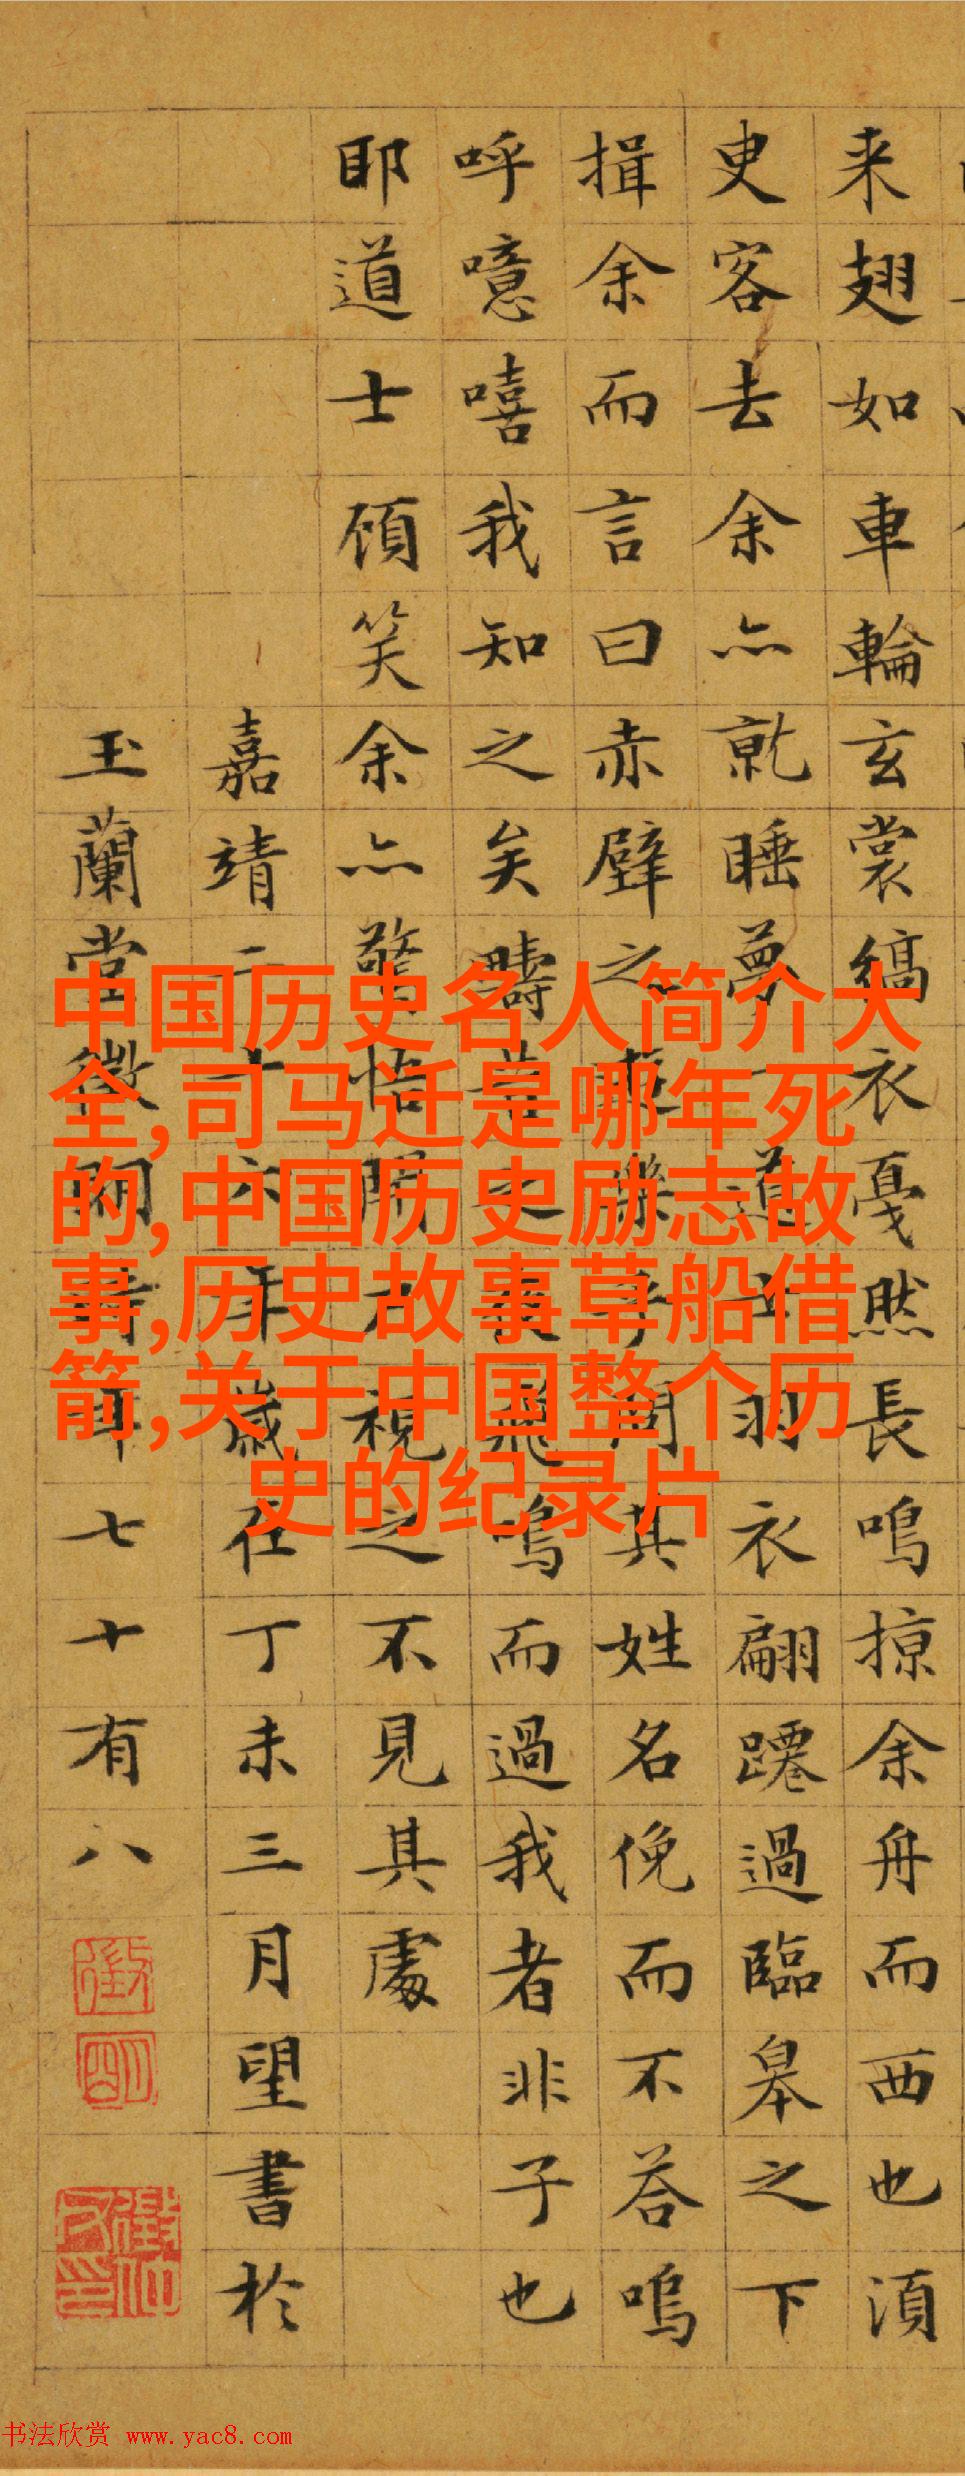 来翅如車輪玄裳縞衣戛然長鳴掠余舟而西也須
臾客去余亦就睡夢一道士羽衣翩躚過臨皋之下
揖余而言曰赤壁之遊樂乎問其姓名俛而不答嗚
呼噫嘻我知之矣疇昔之夜飛鳴而過我者非子也
耶道士顧笑余亦驚悟開戶視之不見其處
嘉靖二十六年歲在丁未三月望書於
玉蘭堂徵明時年七十有八
中国历史名人简介大
全,司马迁是哪年死
的,中国历史励志故
事,历史故事草船借
箭,关于中国整个历
史的纪录片
书法欣赏 www.yac8.com